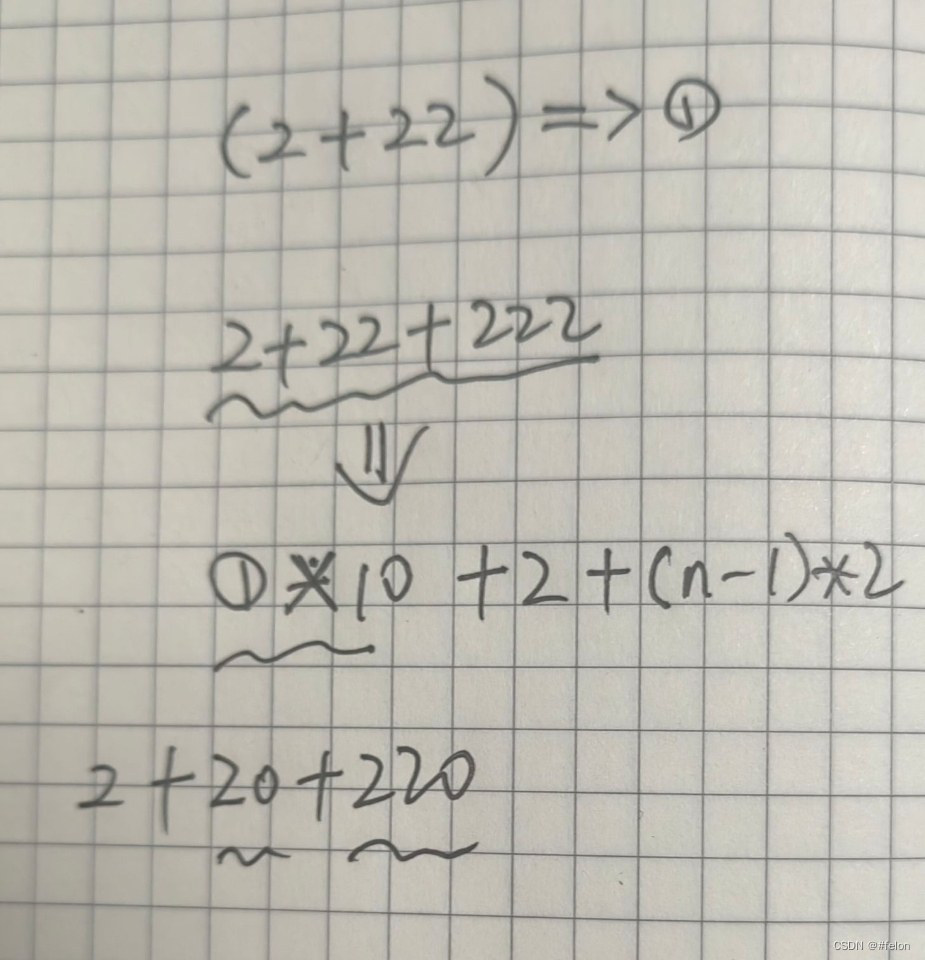 (2+22) => ①
2+22+222
⇓
①*10 +2+(n-1)*2
2+20+220
CSDN @#felon